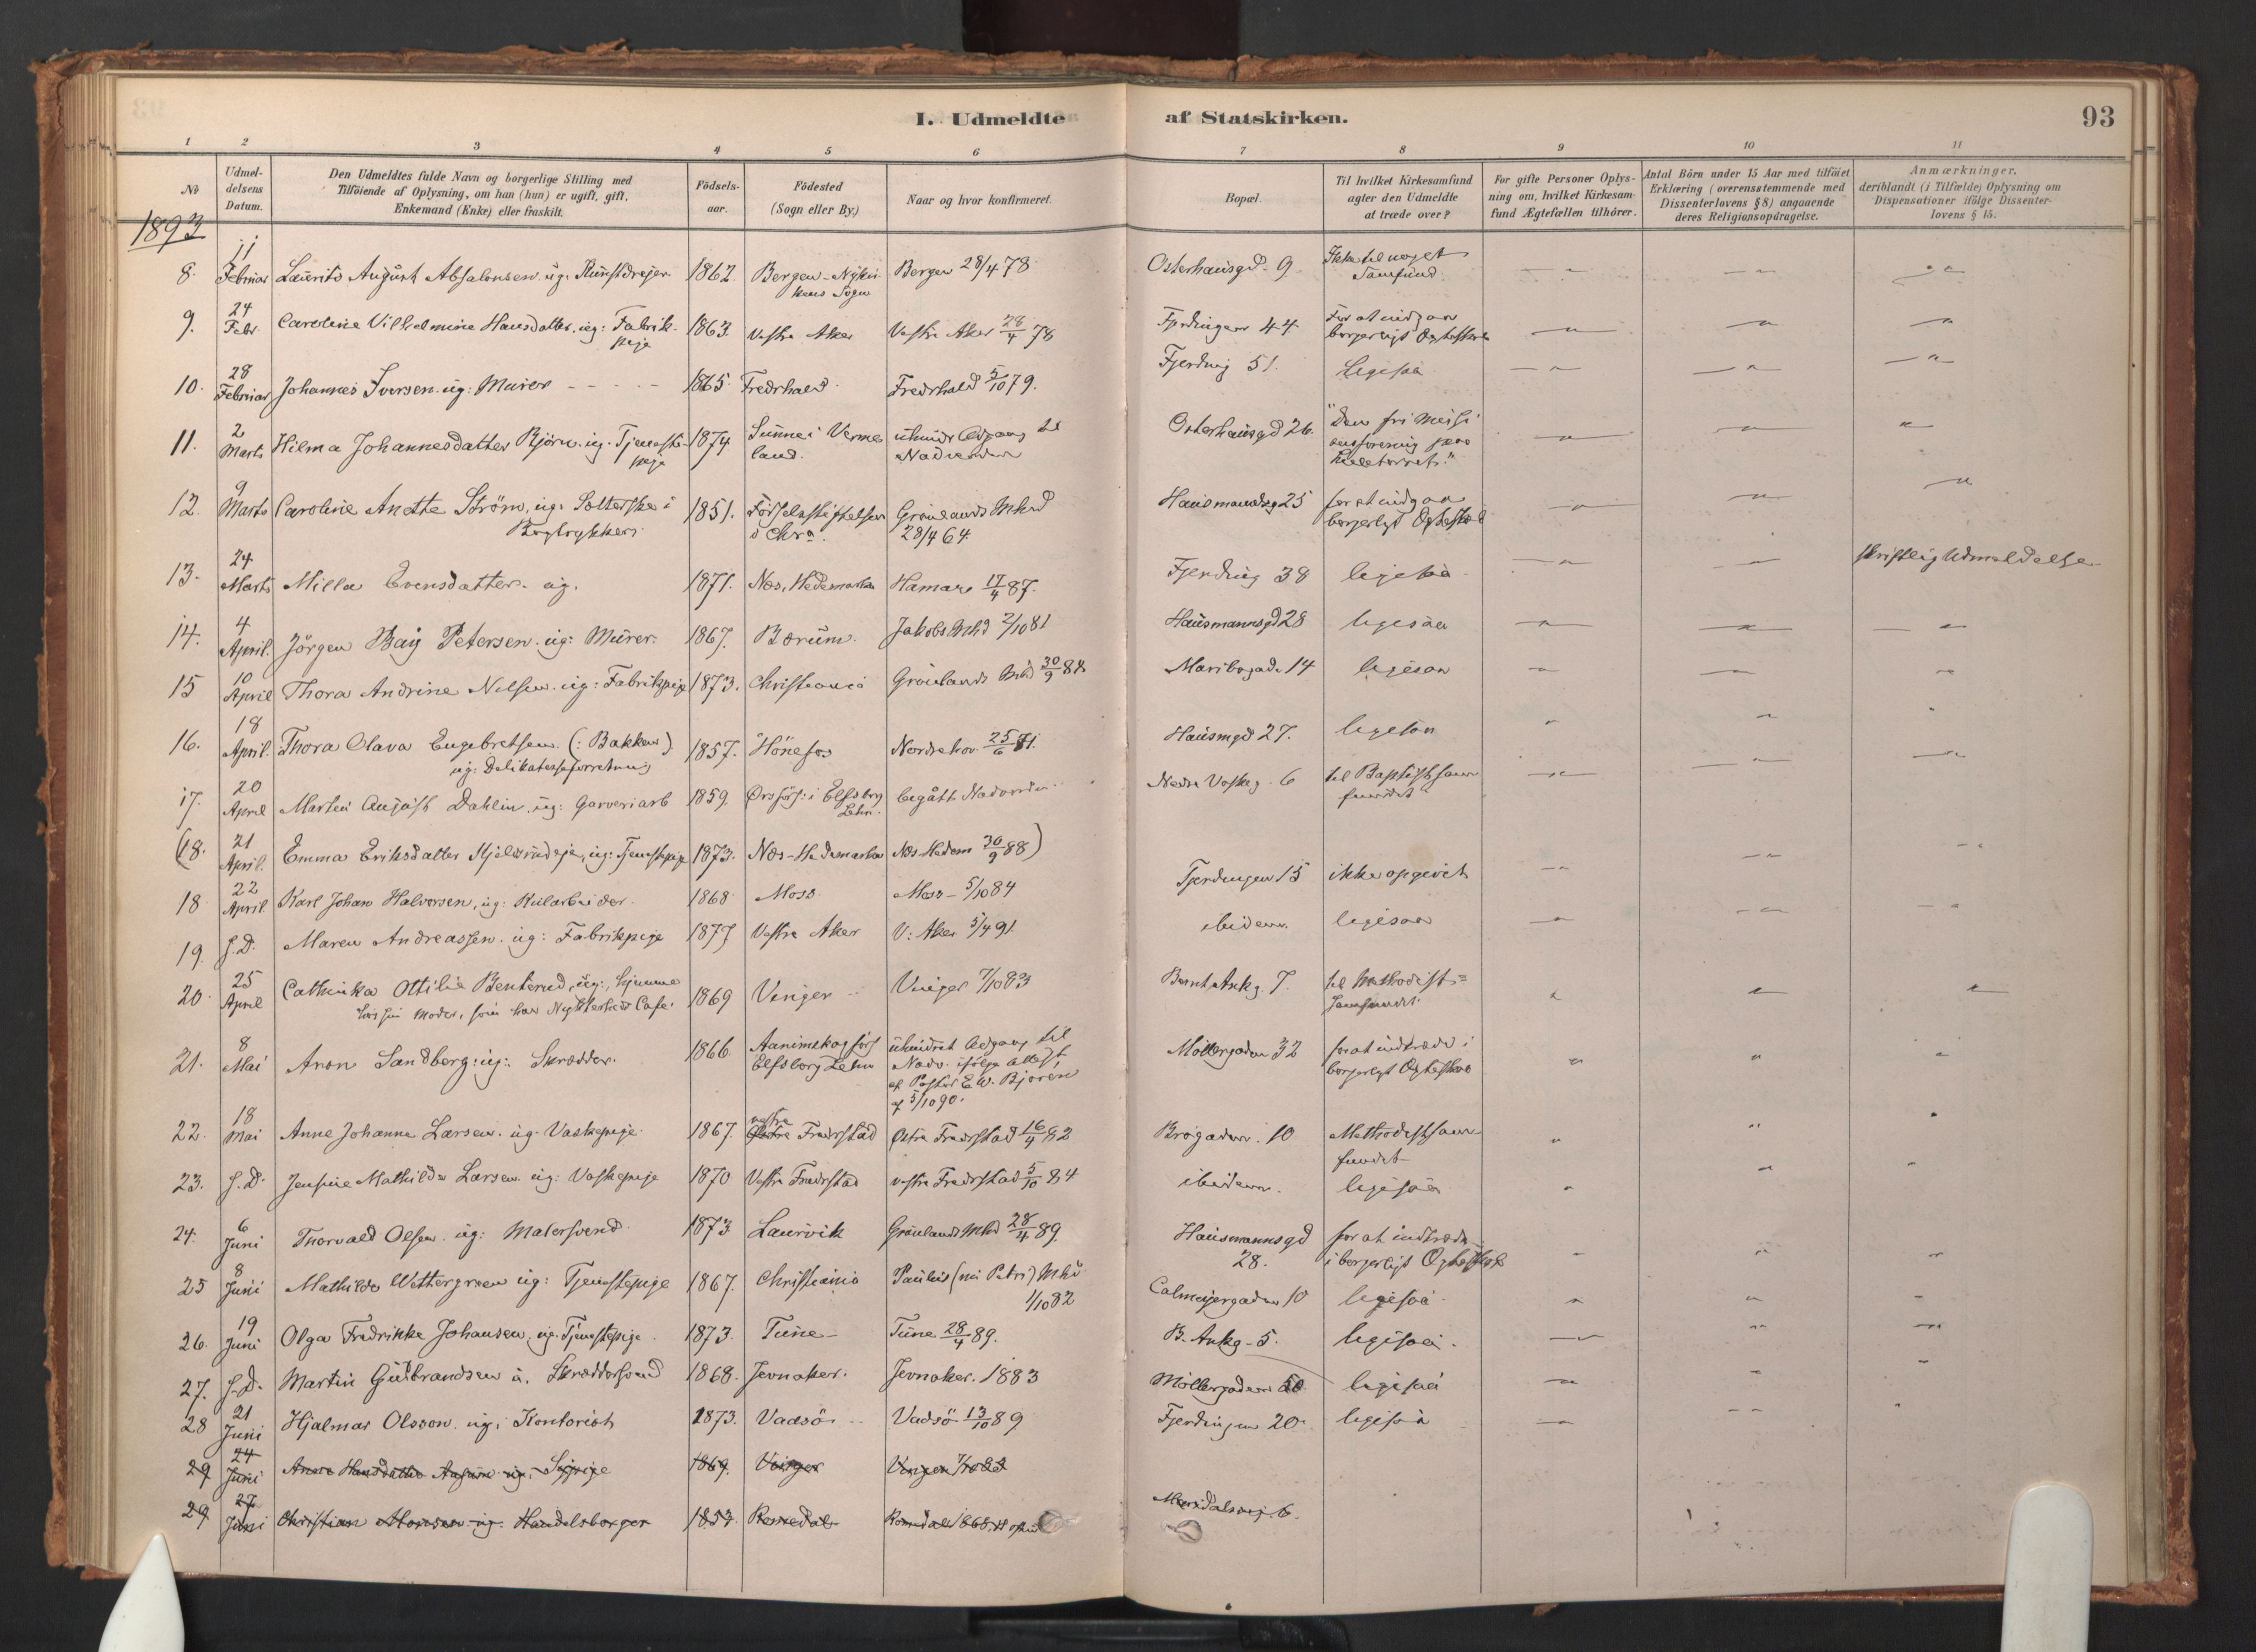 I. Udmeldte af Statskirken. 93
1 2 3 4 5 6 7 8 9 10 11
No
Udmeldelsens Datum.
Den Udmeldtes fulde Navn og borgerlige Stilling med
Tilföiende af Oplysning, om han (hun) er ugift, gift,
Enkemand (Enke) eller fraskilt.
Födselsaar.
Födested
(Sogn eller By.)
Naar og hvor konfirmeret.
Bopæl.
Til hvilket Kirkesamfund
agter den Udmeldte
at træde over?
For gifte Personer Oplys-
ning om, hvilket Kirkesam-
fund Ægtefællen tilhörer.
Antal Börn under 15 Aar med tilföiet
Erklæring (overensstemmende med
Dissenterlovens § 8) angaaende
deres Religionsopdragelse.
Anmærkninger,
deriblandt (i Tilfælde) Oplysning om
Dispensationer ifölge Dissenter-
lovens § 15.
1893
8. 11 Februar Laurits August Absalonsen ug: Kunstdrejer 1862 Bergen-Nykir
kens Sogn Bergen 28/4 78 Osterhausgd. 9 Ikke til noget
Samfund
9. 24 Febr. Caroline Vilhelmine Hansdatter, ug: Fabrik-
pige 1863. Vestre Aker Vestre Aker 28/4 78 Fjerdingen 44 For at indgaa
borgerligt Ægteskab
10. 28 Februar Johannes Iversen ug: Murer 1865 Fredrhald Fredrhald 5/10 79. Fjerding 51. Ligesaa
11. 2 Marts Hilma Johannesdatter Björn. ug. Tjeneste-
pige 1874. Sunne i Verme
land. uhindr Adgang til
Nadverden Osterhausgd 26. "Den fri Missi
onsforening paa
12. 9 Marts Caroline Anette Ström, ug: Sætterske i
Bogtrykkeri 1851. Födselsstiftelsen
i Chra. Grönlands Mhd
28/4 64. Hausmandsg 25 for at indgaa
borgerligt Ægteskab
13. 24 Marts Milla Evensdatter. ug. 1871. Næs, Hedemarken Hamar 17/4 87. Fjerding 38 ligesaa skriftlig Udmeldelse
14. 4 April. Jörgen Bay Petersen ug: Murer. 1867. Bærum. Jakobs Mhd 2/10 81 Hausmannsgd 28 ligesaa
15 10 April Thora Andrine Nilsen. ug: Fabrikpige 1873. Christiania Grönlands Mhd 30/9 88 Maribogade 14 ligesaa
16. 18 April. Thora Olava Engebretsen. (: Bakken)
ug: Delikatesseforretning 1857. Hönefos Norderhov 25/6 71. Hausmgd 27. ligesaa
17. 20 April Martin August Dahlin. ug: Garveriarb 1859. i Elfsborg
Lehn. begått Nadvorden Nedre Voskg. 6 til Baptistsam
fundet
(18. 21 April. Emma Eriksdatter ug: Tjenestepige 1873. Næs-Hedemarken Næs Hedem 30/9 88)
18 22 April Karl Johan Halvorsen, ug: Kularbeider. 1868. Moss Moss - 5/10 84 Fjerdingen 15 ikke opgivet
19. S.D. Maren Andreassen. ug: Fabrikpige 1877 Vestre Aker V: Aker 5/4 91. ibidem. ligesaa
20. 25 April Cathinka Ottilie Benterud, ug:, hjemme
hos sin Moder, som har Nykterheds Cafe. 1869 Vinger Vinger 7/10 83 Bernt Ankg. 7. til Methodist=
samfundet
21. 8 Mai Aron Sandberg: ug: Skrædder. 1866. Aanimskog förs
Elfsborg Lehn uhindret Adgang til
Nadv. ifölge Attest
af Pastor E W. Bjorén
af 5/10 90. Möllergaden 32 for at indtræde i
borgerligt Ægteskab
22. 18 Mai Anne Johanne Larsen. ug. Vaskepige 1867. vestre
Fredrstad Östre Fredrstad 16/4 82 Brogaden. 10 Methodistsam
fundet
23. S.D. Jensine Mathilde Larsen ug: Vaskepige 1870 Vestre Fredrstad vestre Fredrstad 5/10 84 ibidem. ligesaa
24. 6 Juni Thorvald Olsen. ug: Malersvend 1873 Laurvik Grönlands Mhd 28/4 89. Hausmannsgd
28. for at indtræde
i borgerligt Ægteskab
25 8 Juni Mathilde Wettergreen ug: Tjenestepige 1867. Christiania Paulus (nu Petri) Mhd
1/10 82 Calmeyergaden 10 ligesaa
26. 19 Juni Olga Fredrikke Johansen, ug. Tjenestepige 1873. Tune Tune 28/4 89. B. Ankg. 5. ligesaa.
27. S.D. Martin Gulbrandsen u. Skræddersvend 1868. Jevnaker. Jevnaker. 1883 Möllergaden 50 ligesaa
28 21 Juni Hjalmar Olsson. ug: Kontorist 1873. Vadsö Vadsö 13/10 89 Fjerdingen 20. ligesaa
29 24 Juni Hansdatter ug: Sypige 1869. Vinger Vinger 7/10 83
29 27 Juni Christian Monsen ug: Handelsborger 1853. Romsdal Romsdal 1868. Maridalsvej. 6.